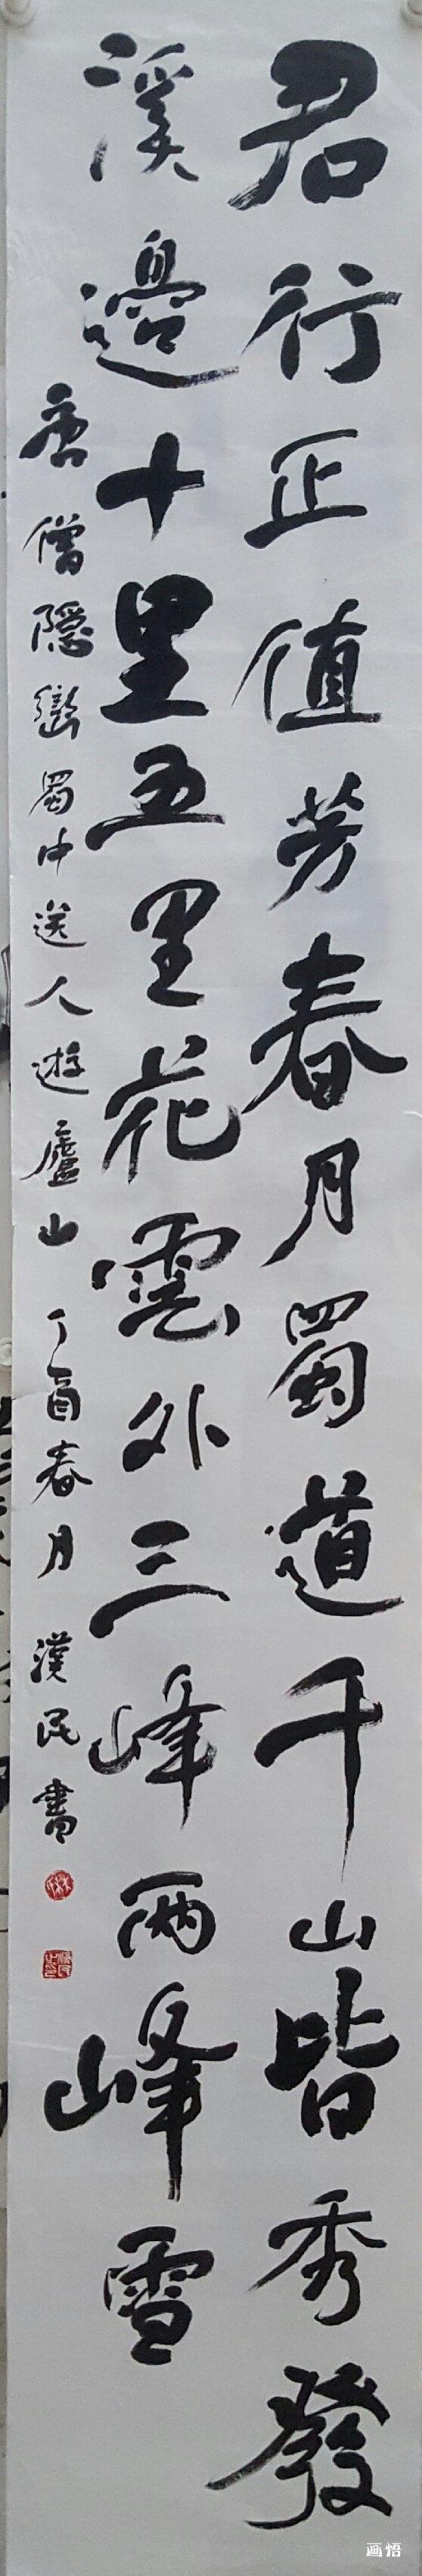 君行正值芳春月蜀道千山皆秀發
溪邊十里五里花雲外三峰兩峰雪
唐僧隱巒蜀中送人遊廬山丁酉春月漢民書
画悟